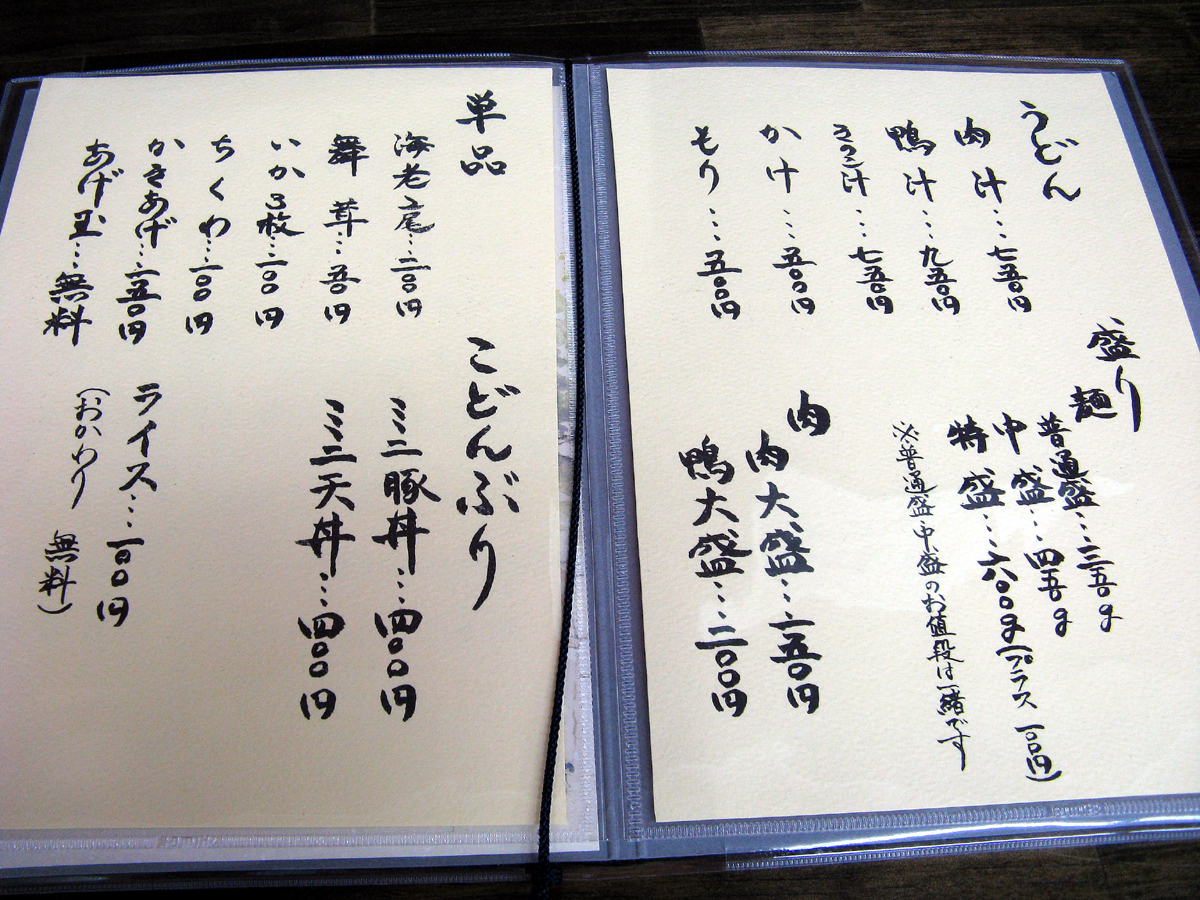 うどん
肉汁…七五〇円
鴨汁…九五〇円
きのこ汁…七五〇円
かけ汁…五〇〇円
もり…五〇〇円
盛り
麺
普通盛…三五〇g
中盛…四五〇g
特盛…六〇〇g(プラス一〇〇円)
※普通盛中盛のお値段は一緒です
肉
肉大盛…一五〇円
鴨大盛…二〇〇円
単品
海老一尾…二〇〇円
舞茸…一五〇円
いか3枚…一〇〇円
ちくわ…一〇〇円
かきあげ…一五〇円
あげ玉…無料
こどんぶり
ミニ豚丼…四〇〇円
ミニ天丼…四〇〇円
ライス…一〇〇円
(おかわり 無料)